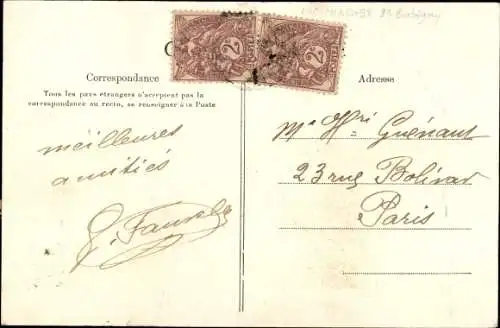 Correspondance
Tous les pays étrangers n'acceptent pas la
correspondance au recto, se renseigner à la Poste
meilleures
amitiés
Adresse
Mr Hri Guénant
23 rue Bolivar
Paris